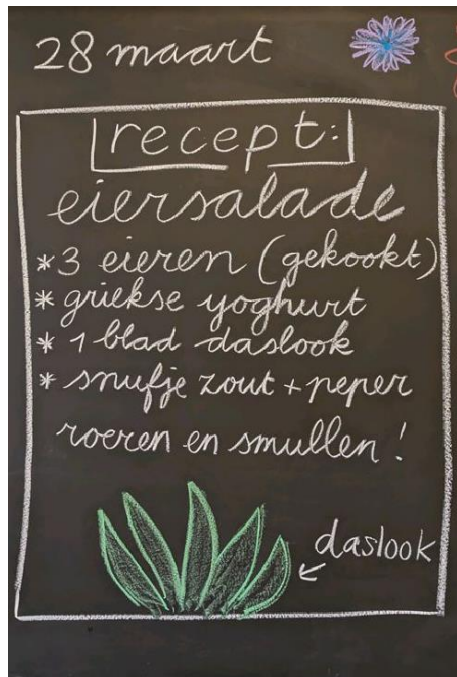 28 maart
recept:
eiersalade
* 3 eieren (gekookt)
* griekse yoghurt
* 1 blad daslook
* snufje zout + peper
roeren en smullen!
daslook